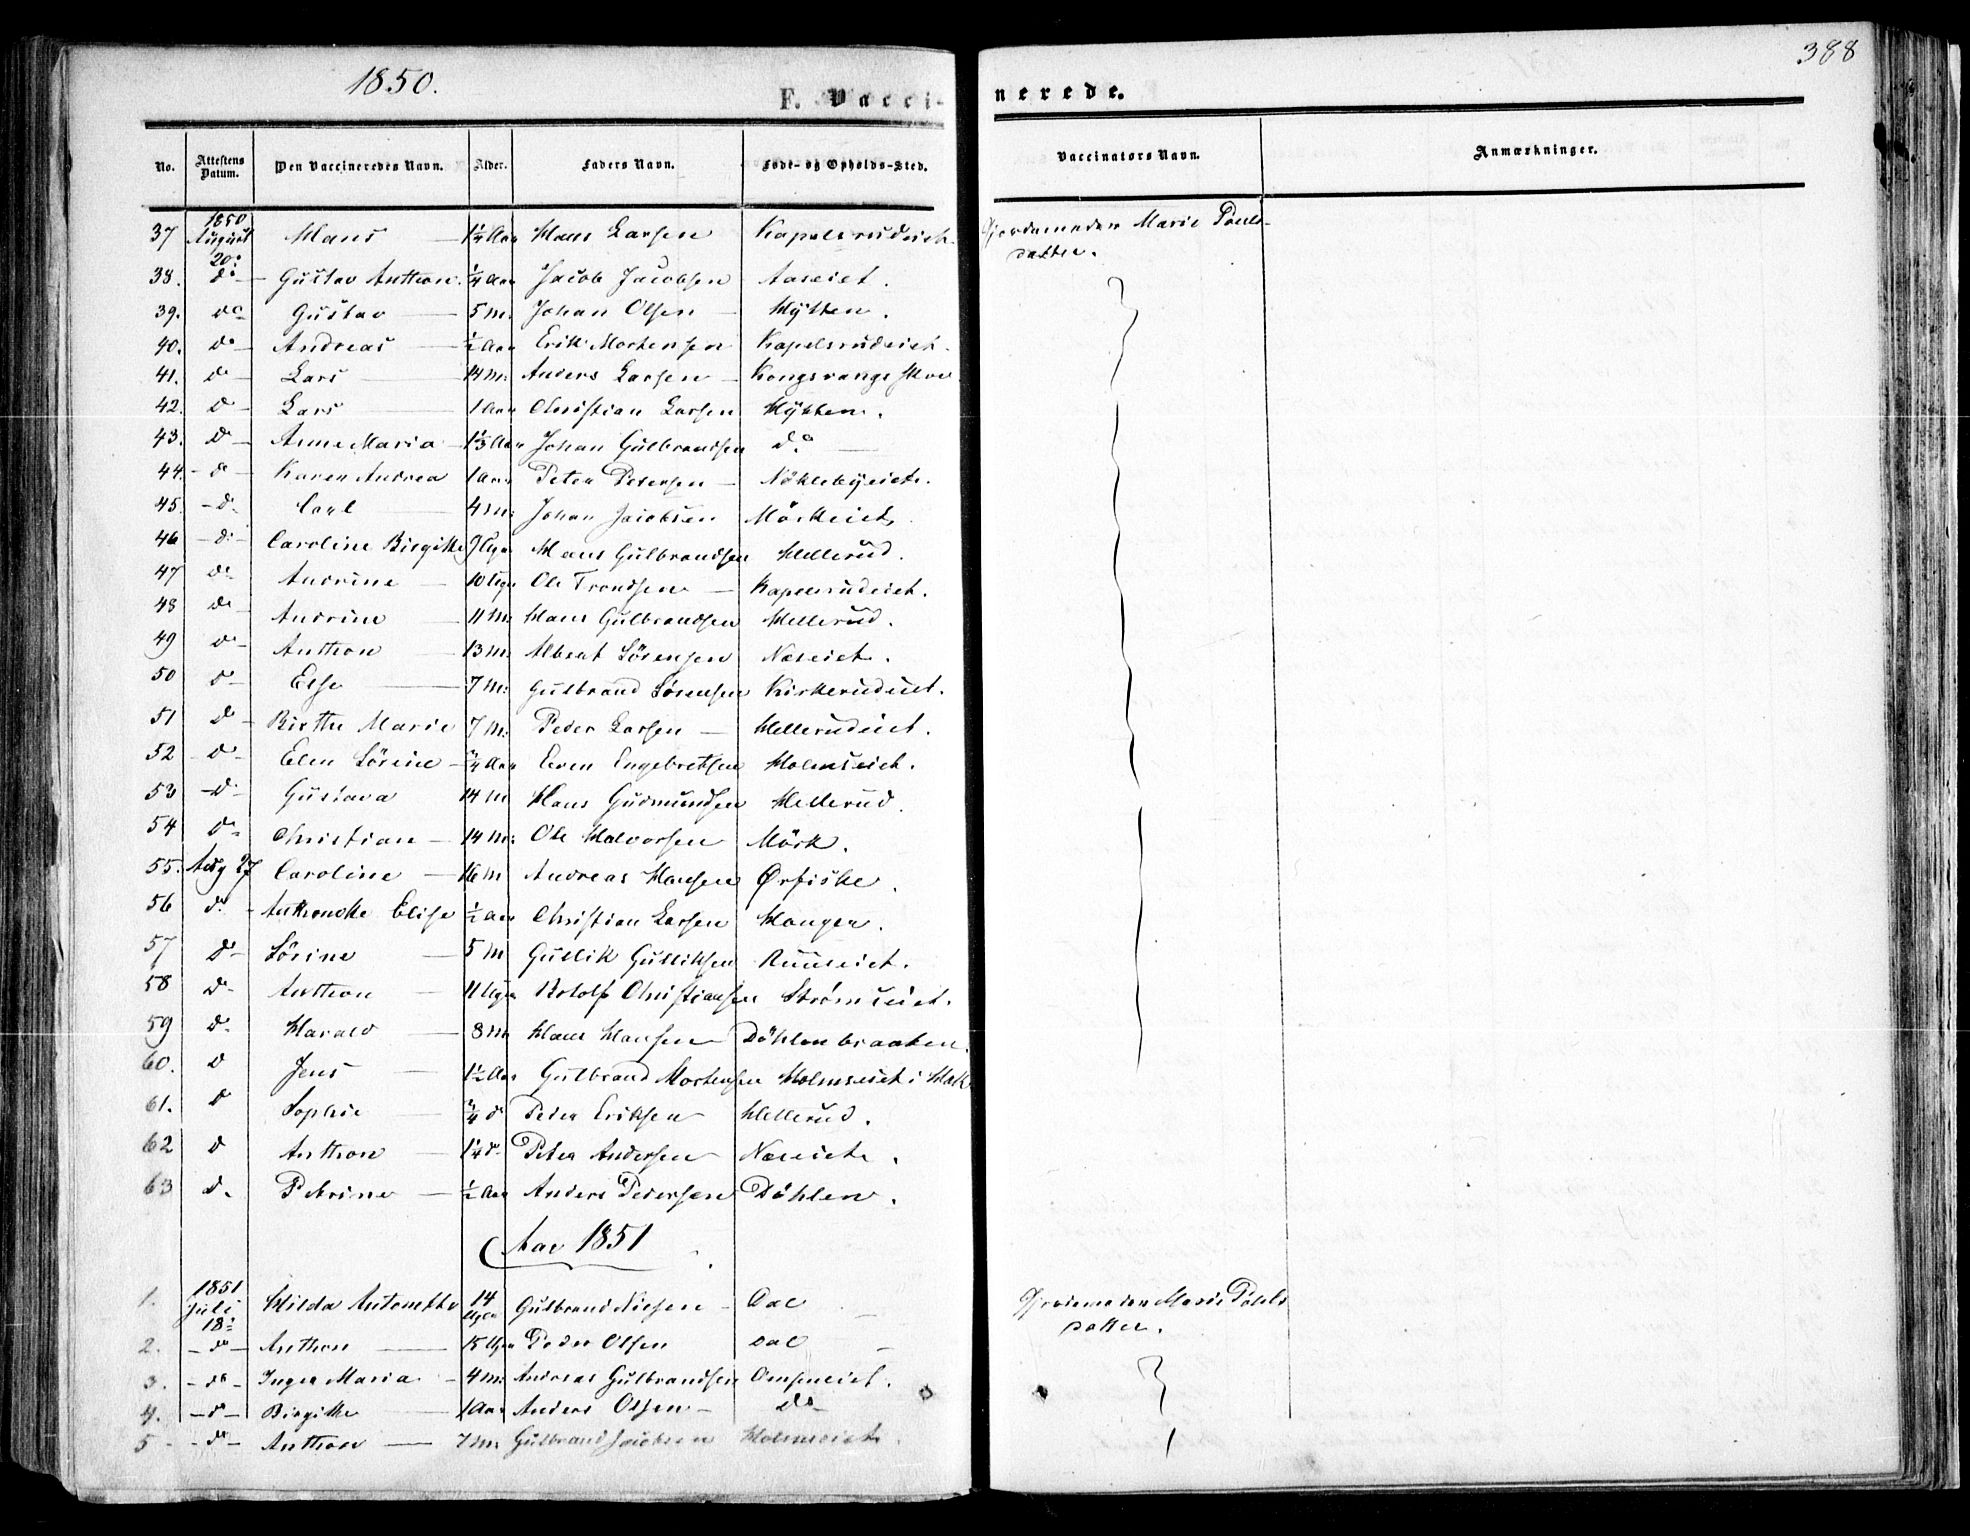 1850.
388
F. Vacci-
nerede.
No. Attestens Datum. Den Vaccineredes Navn. Alder. Faders Navn. Føde- og Opholds-Sted. Vaccinators Navn. Anmærkninger.
37 1850 August 20: Hans 1 1/4 Aar Hans Larsen Kapelsrudeiet Gjordemoder Marie Pouls-
datter.
38. do Gustav Anthon 1/4 Aar Jacob Jacobsen Aaseiet.
39. do Gustav 5 M: Johan Olsen Hytten.
40. do Andreas 1/2 Aar Erik Mortensen Kapelsrudeiet.
41. do Lars 14 M: Anders Larsen Kongsvangs
42. do Lars 1 Aar Christian Larsen Hytten.
43. do Anne Maria 1 1/3 Aar Johan Gulbrandsen do
44. do Karen Andrea 1 Aar Peter Petersen Nöklebyeiet.
45. do Carl 4 M: Johan Jacobsen Mörkeiet.
46 do Caroline Birgitte Uger Hans Gulbrandsen Hellerud.
47 do Andrine 10 Uger Ole Trondsen Kapelsrudeiet.
48 do Andrine 11 M: Hans Gulbrandsen Hellerud.
49 do Anthon 13 M: Albert Sörensen Næseiet.
50 do Else 7 M: Gulbrand Sörensen Kirkerudeiet.
51 do Birthe Marie 7 M: Peder Larsen Hellerudeiet.
52 do Elen Sörine 3/4 Aar Even Engebretsen Holmseiet.
53 do Gustava 14 M Hans Gudmundsen Hellerud.
54 do Christian 14 M: Ole Halvorsen Mörk.
55. Aug 27 Caroline 16 M Andreas Hansen Ørfiske.
56 do Anthonette Elise 1/2 Aar Christian Larsen Hauger.
57 do Sörine 5 M Gullik Gulliksen Ruuseiet.
58 do Anthon 11 Uger Rololf Christiansen Strömseiet.
59 do Harald 8 M Hans Hansen Döhlenbraaten.
60. do Jens 1 1/2 Aar Gulbrand Mortensen Holmseiet i Hak
61. do Sophie 3/4 do Peder Eriksen Hellerud.
62 do Anthon 1 1/4 do Peter Andersen Næseiet.
63 do Petrine 1/2 Aar Anders Pedersen Döhlen.
Aar 1851
1. 1851 Juli 18: Hilda Antonette 14 Uger Gulbrand Nielsen Dal Gjordemoder Marie Pouls
datter.
2. do Anthon 15 Uger Peder Olsen Dal
3. do Inger Maria 4 M: Andreas Gulbrandsen
4. do Birgitte 1 Aar Anders Olsen do
5 do Anthon 7 M: Gulbrand Jacobsen Holmseiet.